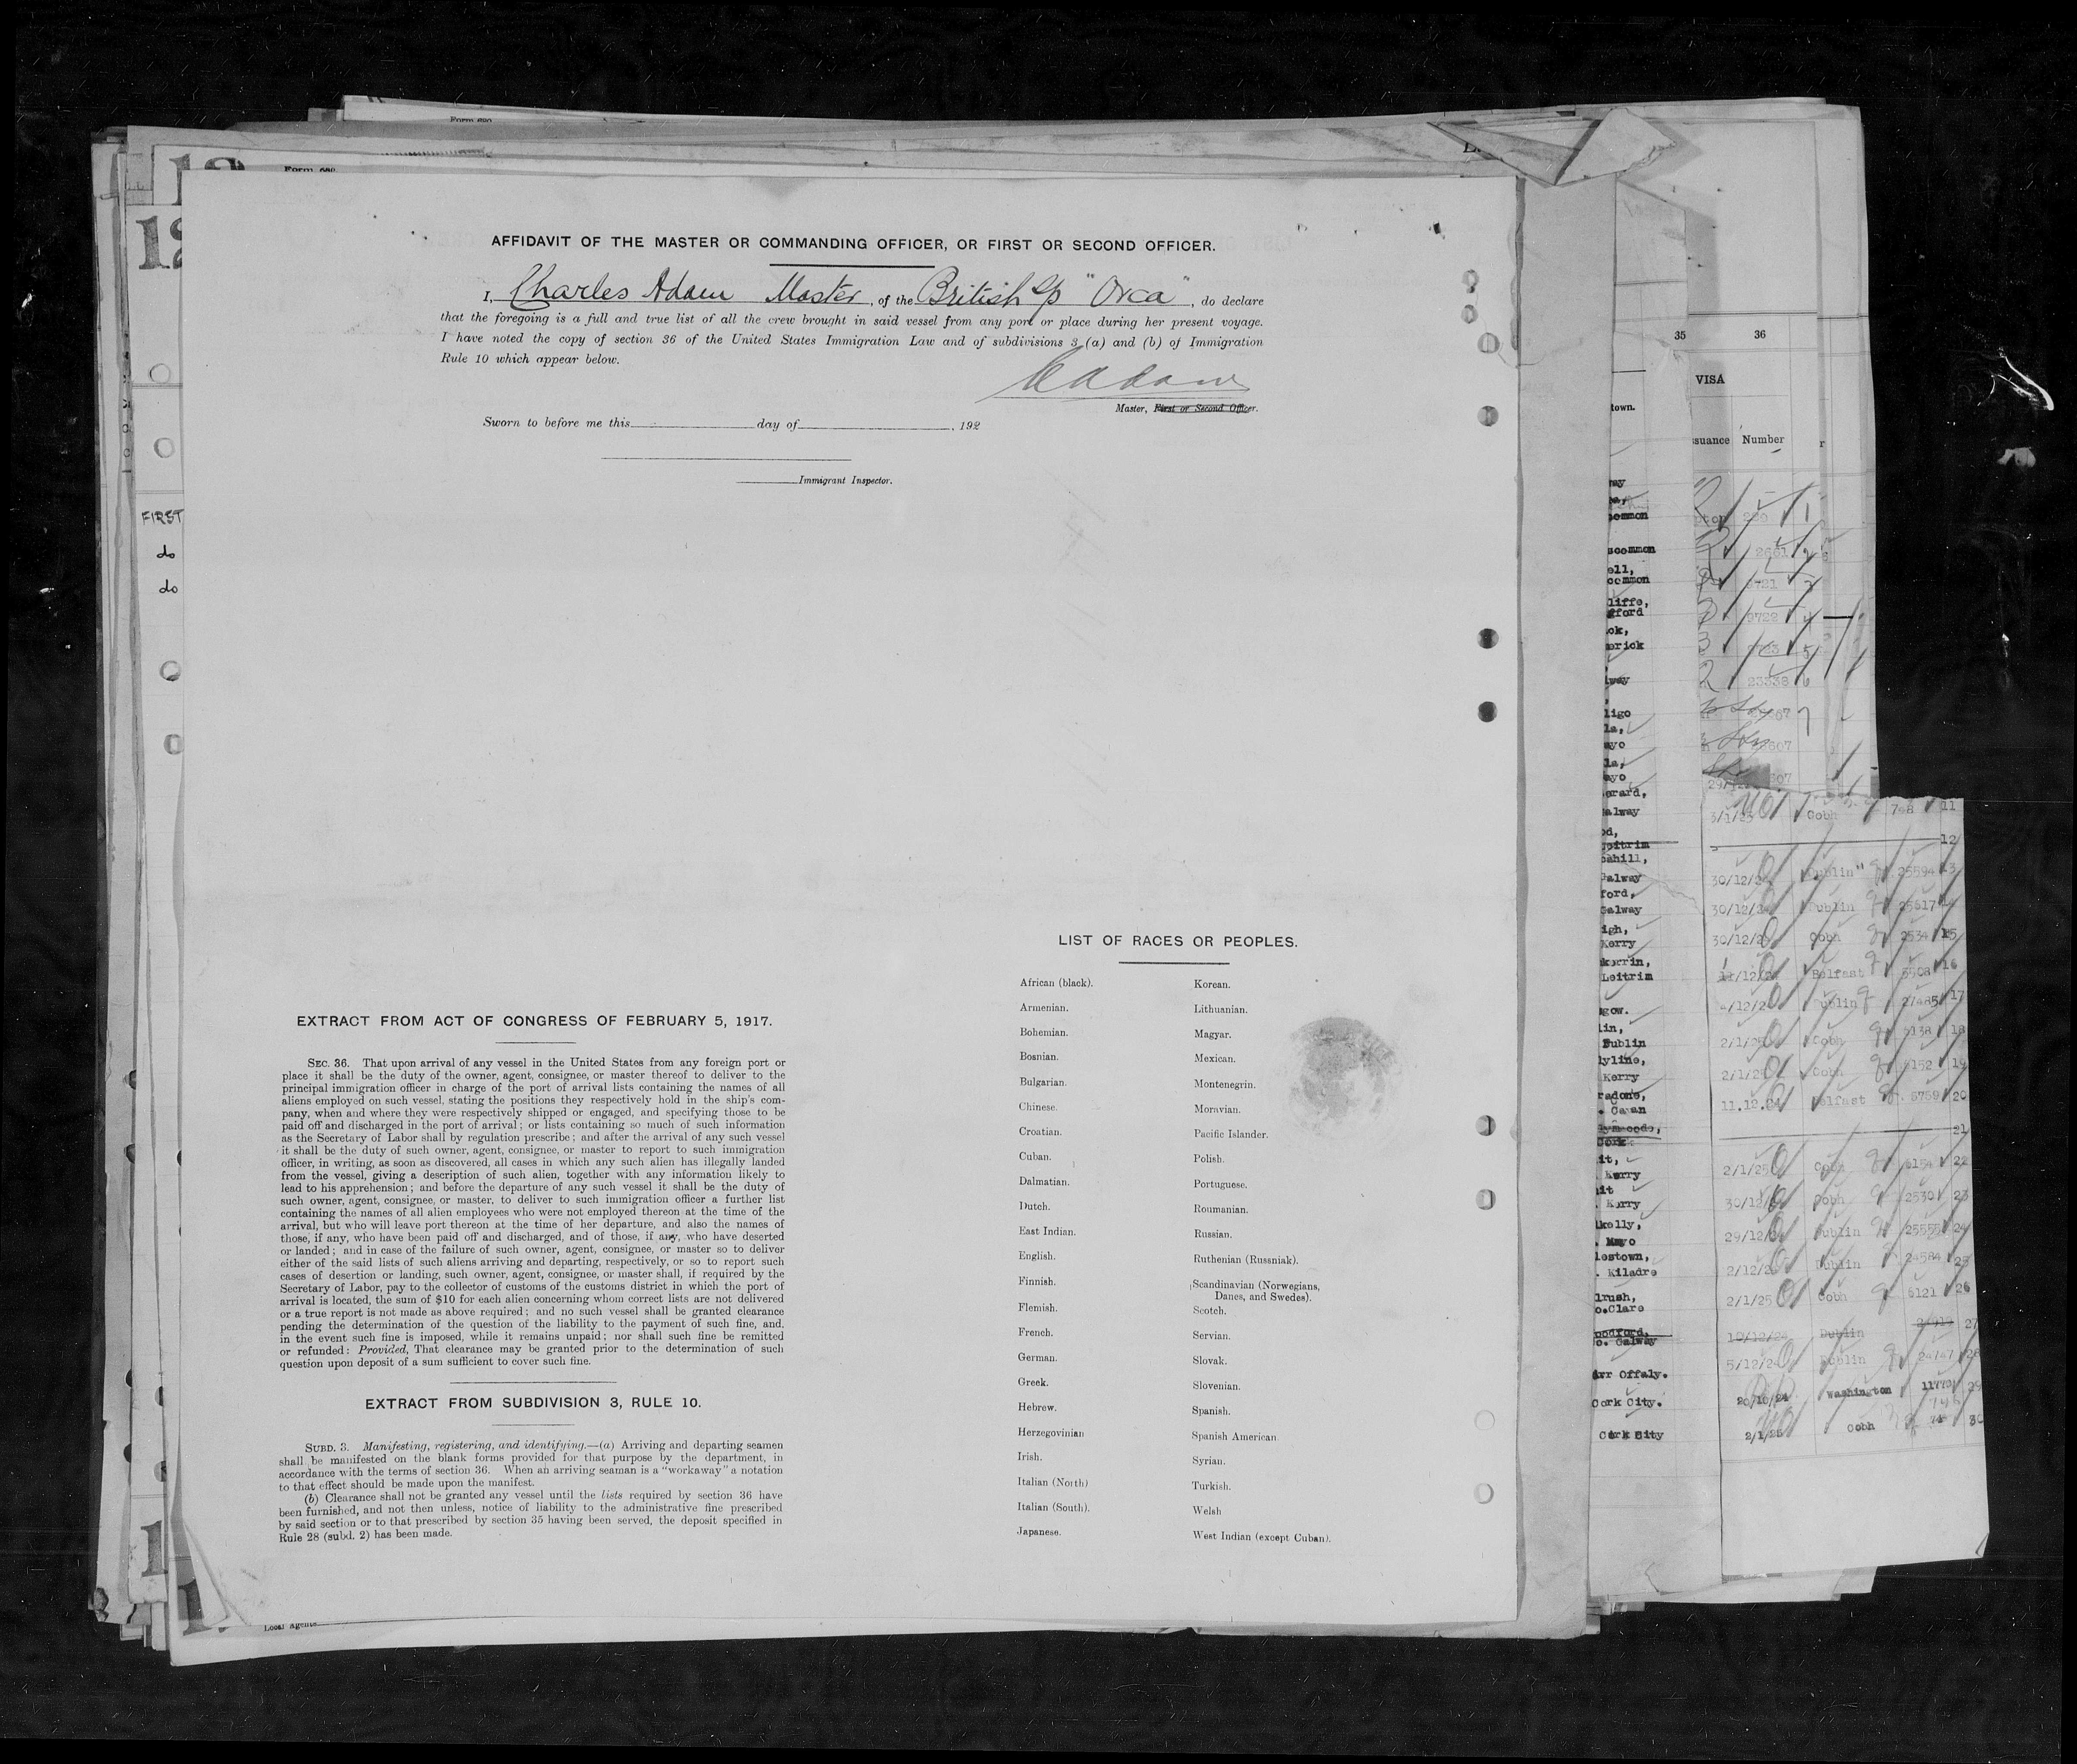 Form 680
Form 680
12
12
FIRST
do
do
AFFIDAVIT OF THE MASTER OR COMMANDING OFFICER, OR FIRST OR SECOND OFFICER.
I, Charles Adam Master, of the British Sp "Orca", do declare
that the foregoing is a full and true list of all the crew brought in said vessel from any port or place during her present voyage.
I have noted the copy of section 36 of the United States Immigration Law and of subdivisions 3 (a) and (b) of Immigration
Rule 10 which appear below.
C Adam
Master, First or Second Officer.
Sworn to before me this day of , 192
Immigrant Inspector.
EXTRACT FROM ACT OF CONGRESS OF FEBRUARY 5, 1917.
SEC. 36. That upon arrival of any vessel in the United States from any foreign port or
place it shall be the duty of the owner, agent, consignee, or master thereof to deliver to the
principal immigration officer in charge of the port of arrival lists containing the names of all
aliens employed on such vessel, stating the positions they respectively hold in the ship's com-
pany, when and where they were respectively shipped or engaged, and specifying those to be
paid off and discharged in the port of arrival; or lists containing so much of such information
as the Secretary of Labor shall by regulation prescribe; and after the arrival of any such vessel
it shall be the duty of such owner, agent, consignee, or master to report to such immigration
officer, in writing, as soon as discovered, all cases in which any such alien has illegally landed
from the vessel, giving a description of such alien, together with any information likely to
lead to his apprehension; and before the departure of any such vessel it shall be the duty of
such owner, agent, consignee, or master, to deliver to such immigration officer a further list
containing the names of all alien employees who were not employed thereon at the time of the
arrival, but who will leave port thereon at the time of her departure, and also the names of
those, if any, who have been paid off and discharged, and of those, if any, who have deserted
or landed; and in case of the failure of such owner, agent, consignee, or master so to deliver
either of the said lists of such aliens arriving and departing, respectively, or so to report such
cases of desertion or landing, such owner, agent, consignee, or master shall, if required by the
Secretary of Labor, pay to the collector of customs of the customs district in which the port of
arrival is located, the sum of $10 for each alien concerning whom correct lists are not delivered
or a true report is not made as above required; and no such vessel shall be granted clearance
pending the determination of the question of the liability to the payment of such fine, and,
in the event such fine is imposed, while it remains unpaid; nor shall such fine be remitted
or refunded: Provided, That clearance may be granted prior to the determination of such
question upon deposit of a sum sufficient to cover such fine.
EXTRACT FROM SUBDIVISION 3, RULE 10.
SUBD. 3. Manifesting, registering, and identifying.—(a) Arriving and departing seamen
shall be manifested on the blank forms provided for that purpose by the department, in
accordance with the terms of section 36. When an arriving seaman is a "workaway" a notation
to that effect should be made upon the manifest.
(b) Clearance shall not be granted any vessel until the lists required by section 36 have
been furnished, and not then unless, notice of liability to the administrative fine prescribed
by said section or to that prescribed by section 35 having been served, the deposit specified in
Rule 28 (subd. 2) has been made.
Local agents
LIST OF RACES OR PEOPLES.
African (black).
Armenian.
Bohemian.
Bosnian.
Bulgarian.
Chinese.
Croatian.
Cuban.
Dalmatian.
Dutch.
East Indian.
English.
Finnish.
Flemish.
French.
German.
Greek.
Hebrew.
Herzegovinian
Irish.
Italian (North)
Italian (South).
Japanese.
Korean.
Lithuanian.
Magyar.
Mexican.
Montenegrin.
Moravian.
Pacific Islander.
Polish.
Portuguese.
Roumanian.
Russian.
Ruthenian (Russniak).
Scandinavian (Norwegians,
Danes, and Swedes).
Scotch.
Servian.
Slovak.
Slovenian.
Spanish.
Spanish American.
Syrian.
Turkish.
Welsh
West Indian (except Cuban).
35 36
VISA
town.
ssuance Number
scommon
common
erick
ligo
ayo
ayo
alway
Galway
Galway
Kerry
Leitrim
Dublin
Kerry
Kerry
. Mayo
lestown,
. Kiladre
lrush,
o.Clare
o. Galway
Offaly.
Cork City.
Cork City
3/1/25 Cobh 748 11
12
30/12/24 Dublin 25594 13
30/12/24 Dublin 25617 14
30/12/24 Cobh 2534 15
Belfast 5508 16
Dublin 27485 17
2/1/25 Cobh 6138 18
2/1/25 Cobh 6152 19
11.12.24 Belfast 5759 20
21
2/1/25 Cobh 6154 22
30/12/24 Cobh 2530 23
29/12/24 Dublin 25555 24
2/12/24 Dublin 24584 25
2/1/25 Cobh 6121 26
10/12/24 Dublin 27
5/12/24 Dublin 24747 28
20/10/24 Washington 29
2/1/25 Cobh 30